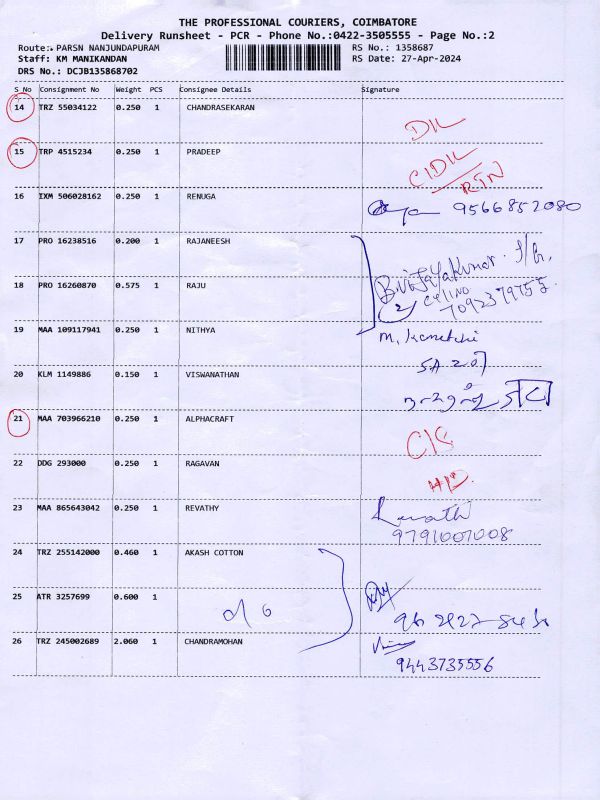 THE PROFESSIONAL COURIERS, COIMBATORE
Delivery Runsheet - PCR - Phone No.:0422-3505555 - Page No.:2
Route: PARSN NANJUNDAPURAM RS No.: 1358687
Staff: KM MANIKANDAN RS Date: 27-Apr-2024
DRS No.: DCJB135868702
S_No Consignment No Weight PCS Consignee Details Signature
14 TRZ 55034122 0.250 1 CHANDRASEKARAN
DIL
15 TRP 4515234 0.250 1 PRADEEP
CIDIL
RTN
16 IXM 506028162 0.250 1 RENUGA
9566852080
17 PRO 16238516 0.200 1 RAJANEESH
18 PRO 16260870 0.575 1 RAJU
2
7092379755
19 MAA 109117941 0.250 1 NITHYA
20 KLM 1149886 0.150 1 VISWANATHAN
21 MAA 703966210 0.250 1 ALPHACRAFT
22 DDG 293000 0.250 1 RAGAVAN
23 MAA 865643042 0.250 1 REVATHY
9791007008
24 TRZ 255142000 0.460 1 AKASH COTTON
25 ATR 3257699 0.600 1
26 TRZ 245002689 2.060 1 CHANDRAMOHAN
9443735556